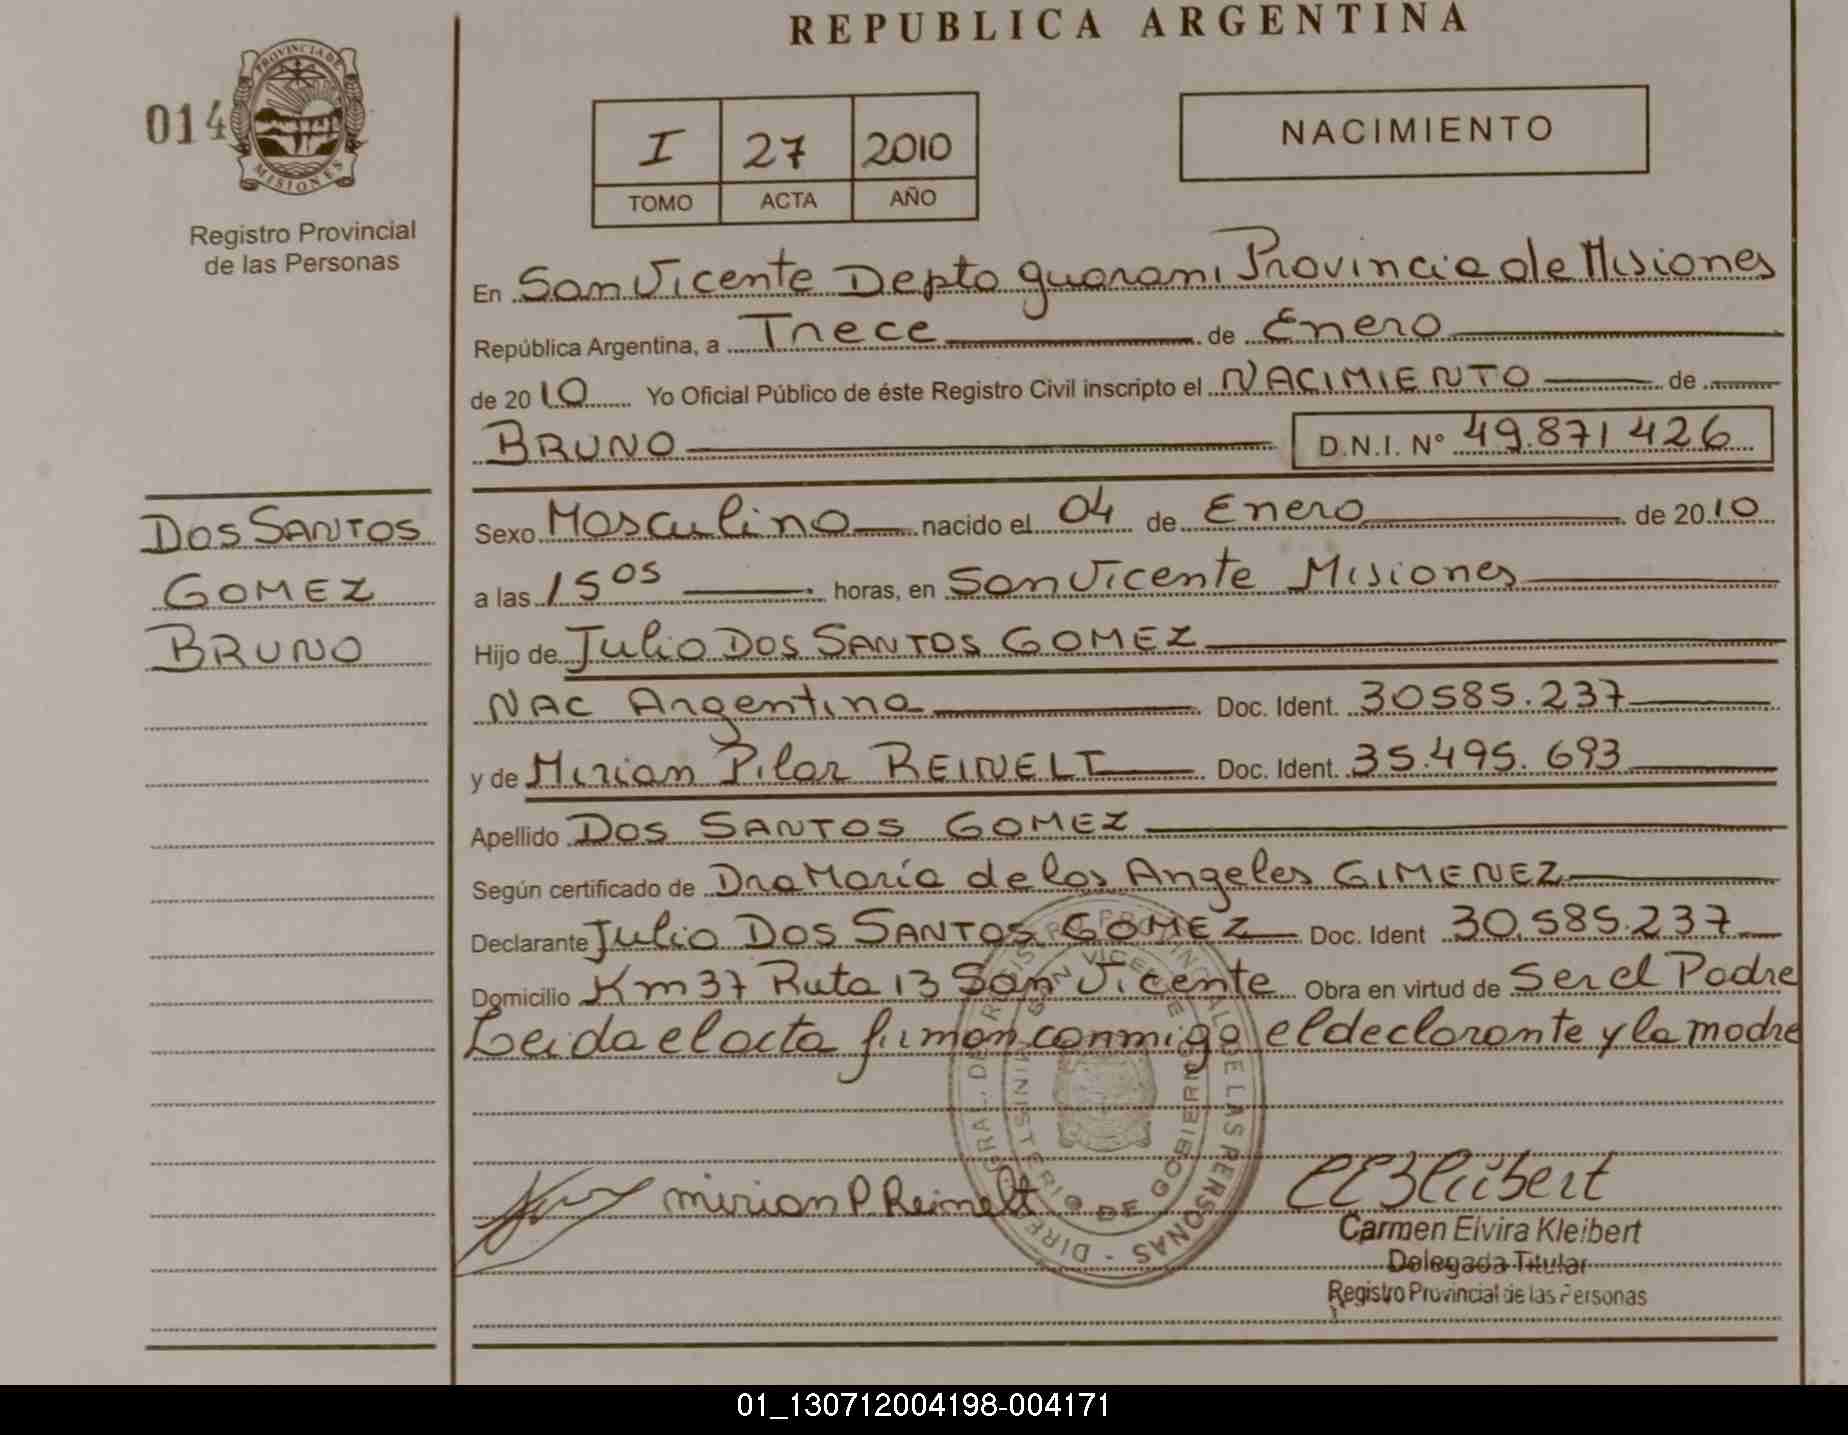 REPUBLICA ARGENTINA
014
PROVINCIA DE
MISIONES
Registro Provincial
de las Personas
I 27 2010
TOMO ACTA AÑO
NACIMIENTO
En San Vicente Depto guarani Provincia de Misiones
República Argentina, a Trece de Enero
de 2010 Yo Oficial Público de éste Registro Civil inscripto el NACIMIENTO de
BRUNO D.N.I. N° 49.871426
DOS SANTOS
GOMEZ
BRUNO
Sexo Masculino nacido el 04 de Enero de 2010
a las 15 05 horas, en San Vicente Misiones
Hijo de Julio DOS SANTOS GOMEZ
NAC Argentina Doc. Ident. 30585.237
y de Mirian Pilar REINELT Doc. Ident. 35.495.693
Apellido DOS SANTOS GOMEZ
Según certificado de Dra María de los Angeles GIMENEZ
Declarante Julio DOS SANTOS GOMEZ Doc. Ident 30.585.237
Domicilio Km 37 Ruta 13 San Vicente Obra en virtud de Ser el Padre
Leida el acta firman conmigo el declarante y la madre
mirian P. Reinelt
Carmen Elvira Kleibert
Delegada Titular
Registro Provincial de las Personas
01_130712004198-004171